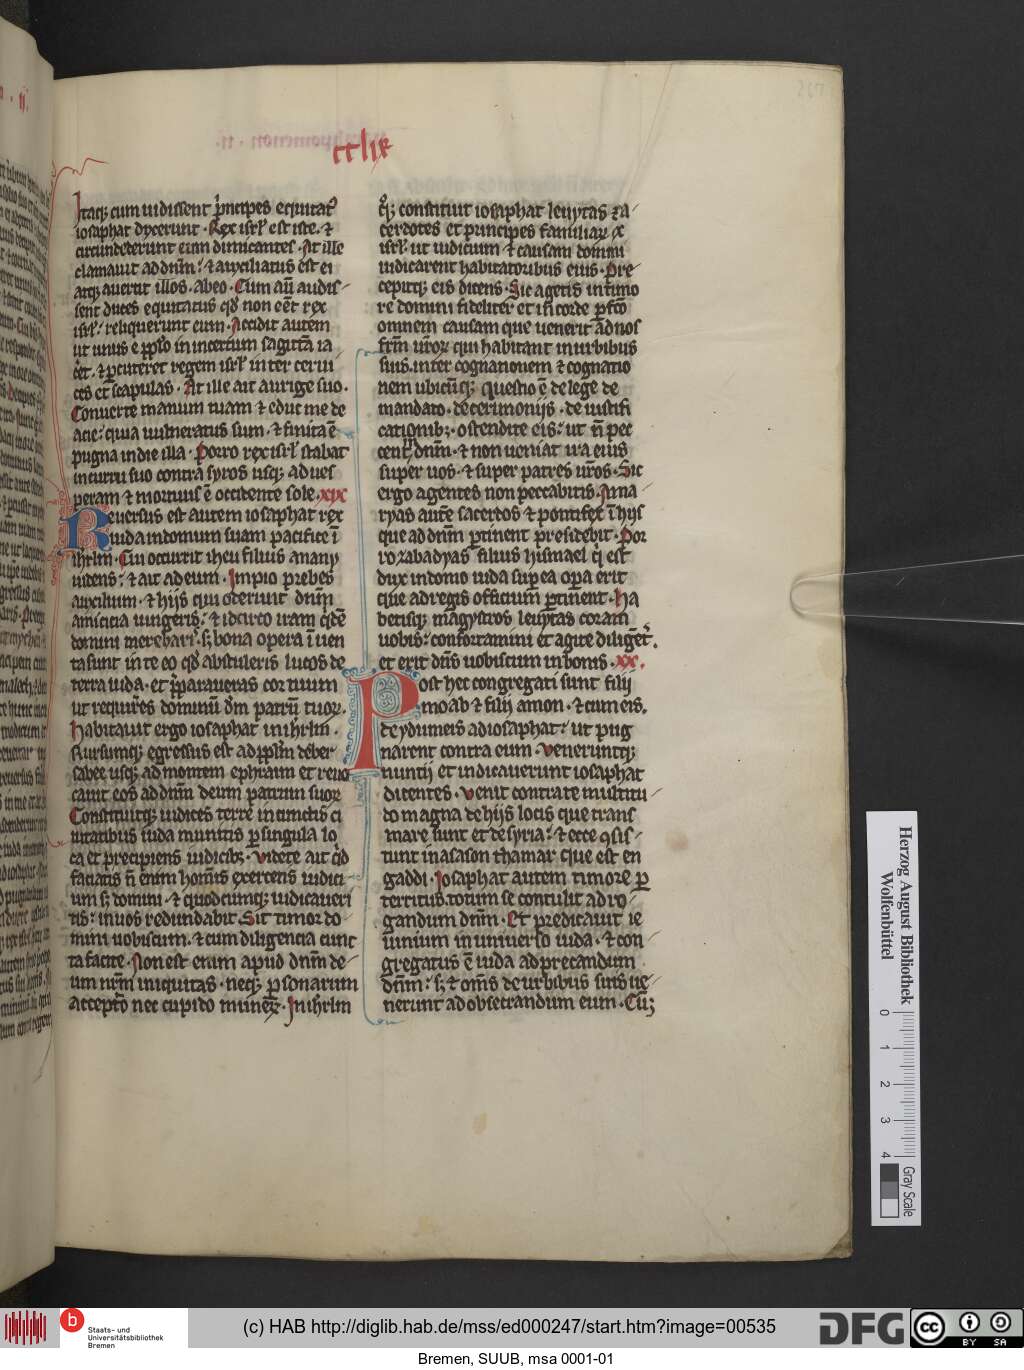 cclix
Itaq; cum uidissent p̄ncipes equitat᷒
iosaphat dyxerunt · Rex isrl̄ est iste · ⁊
circumdederunt eum dimicantes · At ille
clamauit ad dn̄m : ⁊ auxiliatus est ei
atq; auertit illos · ab eo · Cum aut̄ audis
sent duces equitatus qd̄ non eēt rex
isrl̄ : reliquerunt eum · Accidit autem
ut unus e ppl̄o in incertum sagittā ia
cēt · ⁊ p̄cuteret regem isrl̄ inter cerui
ces et scapulas · At ille ait aurige suo ·
Conuerte manum tuam ⁊ educ me de
acie : quia uulneratus sum · ⁊ finita ē
pugna in die illa · Porro rex isrl̄ stabat
in curru suo contra syros usq; ad ues
peram ⁊ mortuus ē occidente sole · xix
Reuersus est autem iosaphat rex
iuda in domum suam pacifice ī
ihrl̄m · Cui occurrit iheu filius anany
uidens : ⁊ ait ad eum · Impio prebes
auxilium · ⁊ hijs qui oderunt dn̄m
amicicia iungeris : ⁊ idcirco iram q̄dē
domini merebaris · s; bona opera ī uen
ta sunt in te eo qd̄ abstuleris lucos de
terra iuda · et p̄paraueras cor tuum
ut requir̄es dominū dm̄ patrū tuoꝝ ·
Habitauit ergo iosaphat in ihrl̄m ·
Rursumq; egressus est ad ppl̄m de ber
sabee usq; ad montem ephraim et reuo
cauit eos ad dn̄m deum patrum suoꝝ
Constituitq; iudices terre in cunctis ci
uitatibus iuda munitis p̄ singula lo
ca et precipiens iudicib; · Videte ait q̄d
faciatis n̄ enim hom̄is exercens iudici
um s; domini · ⁊ quodcumq; iudicaueri
tis : in uos redundabit · Sit timor do
mini uobiscum · ⁊ cum diligencia cunc
ta facite · Non est enim apud dn̄m de
um nr̄m iniquitas · neq; p̄sonarum
acceptō nec cupido muneꝝ · In ihrl̄m
q̄q; constituit iosaphat leuytas ⁊ sa
cerdotes et principes familiaꝝ ex
isrl̄ ut iudicium ⁊ causam domini
iudicarent habitatoribus eius · Pre
cepitq; eis dicens · Sic agetis in timo
re domini fideliter et in corde p̄fc̄o
omnem causam que uenerit ad uos
fr̄m ur̄oꝝ qui habitant in urbibus
suis · inter cognationem ⁊ cognatio
nem ubicūq; questio ē de lege de
mandato · de cerimonijs · de iustifi
cationib; · ostendite eis : ut n̄ pec
cent in dn̄m · ⁊ non ueniat ira eius
super uos · ⁊ super patres ur̄os · Sic
ergo agentes non peccabitis · Ama
ryas aut̄e sacerdos ⁊ pontifex ī hijs
que ad dn̄m p̄tinent presidebit · Por
ro zabadyas filius hismael q̄ est
dux in domo iuda sup̄ ea op̄a erit
que ad regis officium p̄tinent · Ha
betisq; magystros leuytas coram
uobis : confortamini et agite diligēt ·
et erit dn̄s uobiscum in bonis · xx ·
Post hec congregati sunt filij
moab ⁊ filij amon · ⁊ cum eis
de ydumeis ad iosaphat : ut pug
narent contra eum · Veneruntq;
nuntij et indicauerunt iosaphat
dicentes · Venit contra te multitu
do magna de hijs locis que trans
mare sunt et de syria : ⁊ ecce ꝯsis
tunt in asason thamar que est en
gaddi · Iosaphat autem timore p̄
territus totum se contulit ad ro
gandum dn̄m · Et predicauit ie
iunium in uniuerso iuda · ⁊ con
gregatus ē iuda ad precandum
dn̄m : s; ⁊ om̄s de urbibus suis ue
nerunt ad obsecrandum eum · Cū;
Herzog August Bibliothek
Wolfenbüttel
0 1 2 3 4
Gray Scale
b Staats- und
Universitätsbibliothek
Bremen
(c) HAB http://diglib.hab.de/mss/ed000247/start.htm?image=00535
DFG
cc BY SA
Bremen, SUUB, msa 0001-01